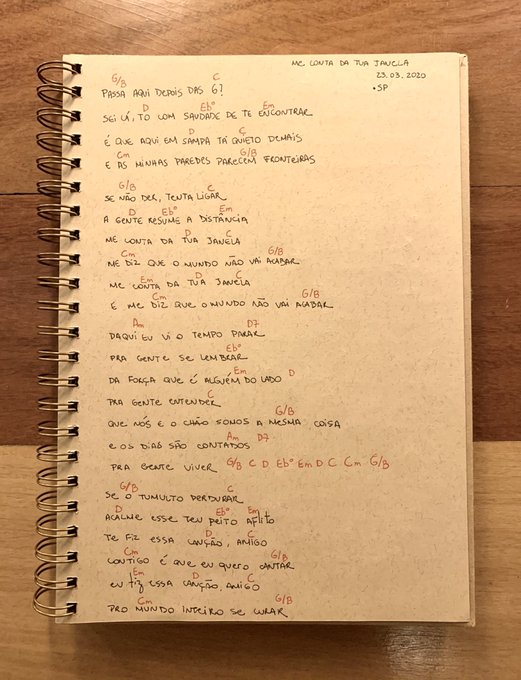 ME CONTA DA TUA JANELA
23.03.2020
•SP
G/B C
PASSA AQUI DEPOIS DAS 6?
D Eb° Em
SEI LÁ, TÔ COM SAUDADE DE TE ENCONTRAR
D C
É QUE AQUI EM SAMPA TÁ QUIETO DEMAIS
Cm G/B
E AS MINHAS PAREDES PARECEM FRONTEIRAS
G/B C
SE NÃO DER, TENTA LIGAR
D Eb° Em
A GENTE RESUME A DISTÂNCIA
D C
ME CONTA DA TUA JANELA
Cm G/B
ME DIZ QUE O MUNDO NÃO VAI ACABAR
Em D C
ME CONTA DA TUA JANELA
Cm G/B
E ME DIZ QUE O MUNDO NÃO VAI ACABAR
Am D7
DAQUI EU VI O TEMPO PARAR
Eb°
PRA GENTE SE LEMBRAR
Em D
DA FORÇA QUE É ALGUÉM DO LADO
C
PRA GENTE ENTENDER
G/B
QUE NÓS E O CHÃO SOMOS A MESMA COISA
Am D7
E OS DIAS SÃO CONTADOS
PRA GENTE VIVER G/B C D Eb° Em D C Cm G/B
G/B C
SE O TUMULTO PERDURAR
D Eb° Em
ACALME ESSE TEU PEITO AFLITO
D C
TE FIZ ESSA CANÇÃO, AMIGO
Cm G/B
CONTIGO É QUE EU QUERO CANTAR
Em D C
EU FIZ ESSA CANÇÃO, AMIGO
Cm G/B
PRO MUNDO INTEIRO SE CURAR